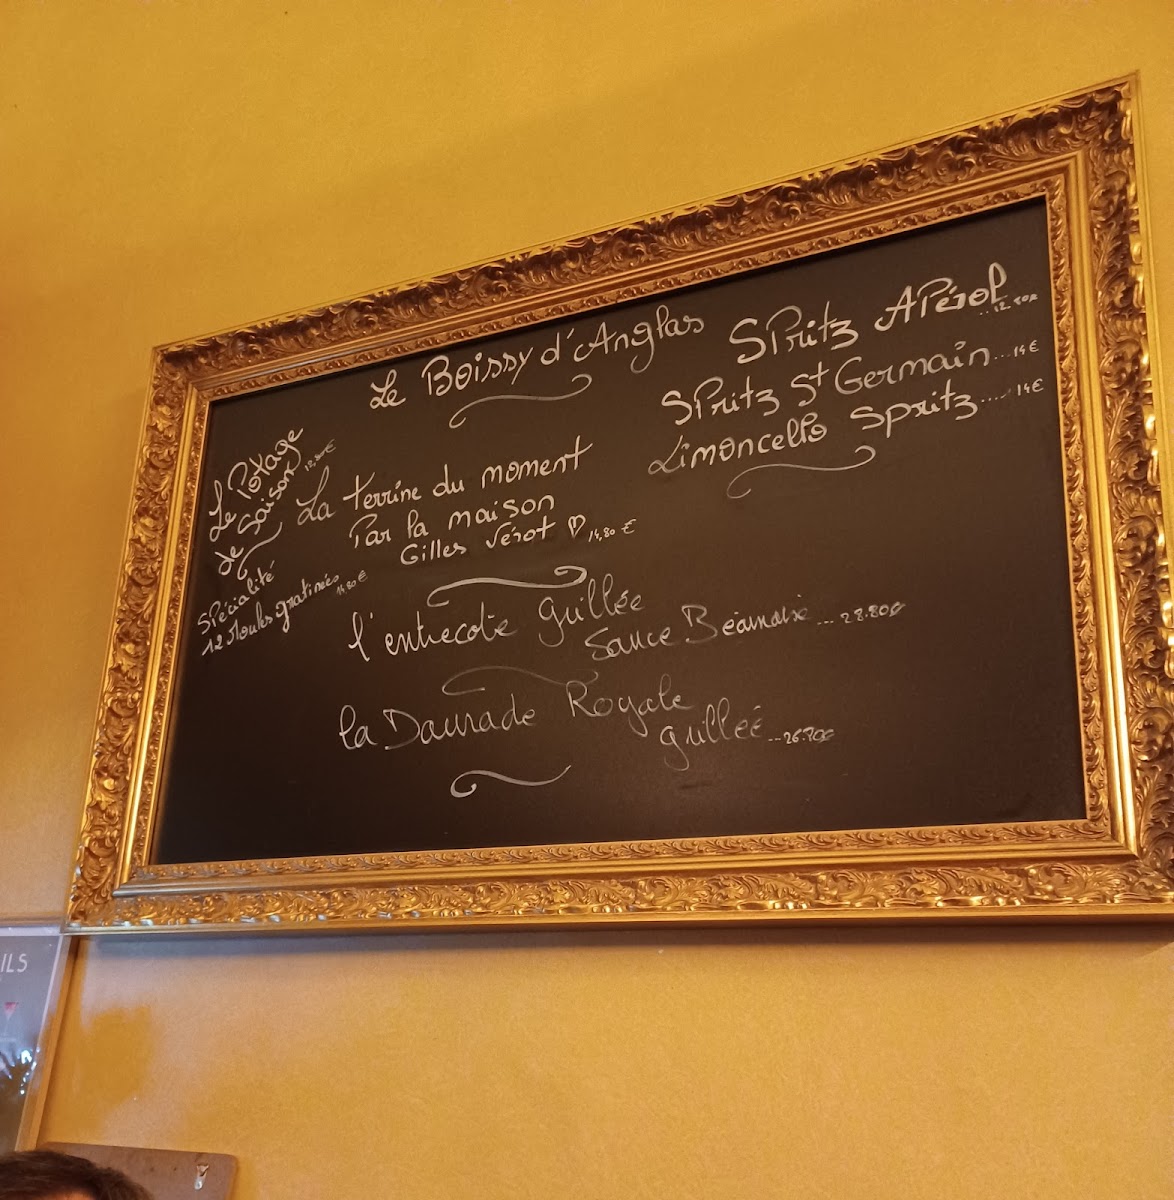 Le Boissy d'Anglas
Spritz Apérol
Spritz St Germain ... 14€
Limoncello Spritz ..... 14€
Le Potage
de saison
La terrine du moment
Par la maison
Gilles Vérot ♡ 14,80 €
Spécialité
12 Moules gratinées 14,80€
l'entrecote Grillée
Sauce Béarnaise ... 28.80€
la Daurade Royale
grillée
ILS